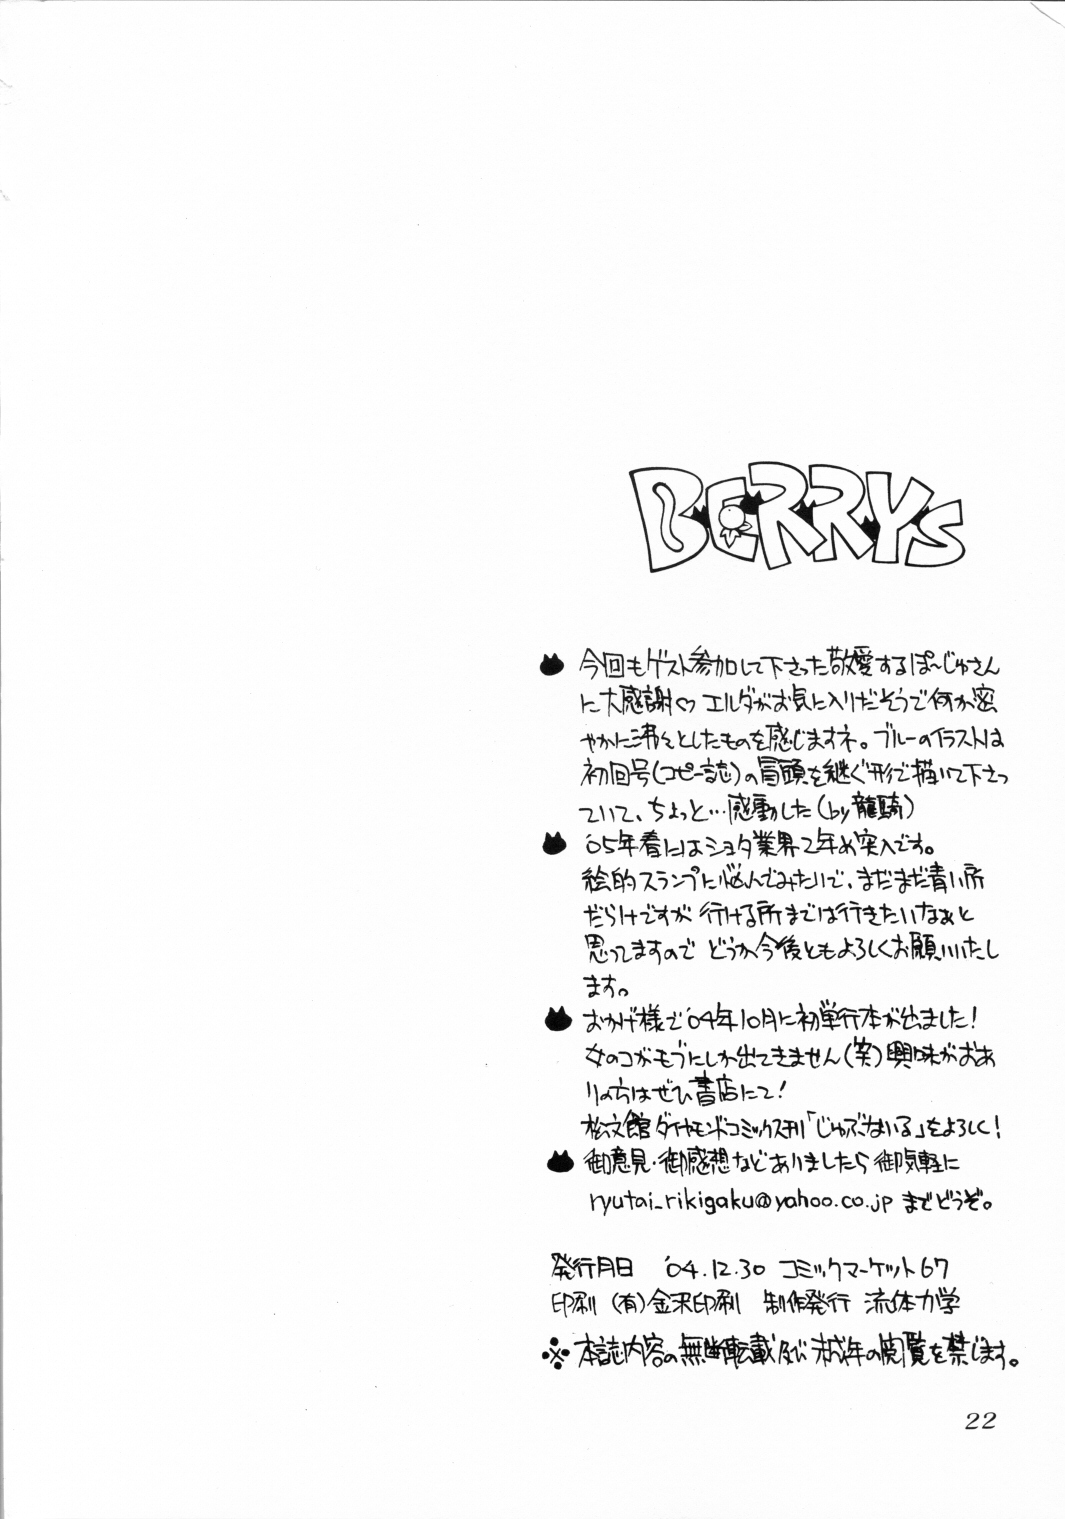 BERRYS
今回もゲスト参加して下さった敬愛するぽ〜じゅさん
に大感謝♡ エルダがお気に入りだそうで何か密
やかに沸々としたものを感じますネ。ブルーのイラストは
初回号(コピー誌)の冒頭を継ぐ形で描いて下さっ
ていて、ちょっと…感動した(by龍騎)
'05年春にはショタ業界2年め突入です。
絵的スランプに悩んでみたいで、まだまだ青い所
だらけですが 行ける所までは行きたいなぁと
思ってますので どうか今後ともよろしくお願いいたし
ます。
おかげ様で'04年10月に初単行本が出ました!
女のコがモブにしか出てきません(笑)興味がおあ
りの方はぜひ書店にて!
松文館ダイヤモンドコミックス刊「じゅぶないる」をよろしく!
御意見・御感想などありましたら御気軽に
ryutai_rikigaku@yahoo.co.jp までどうぞ。
発行月日 '04.12.30 コミックマーケット67
印刷 (有)金沢印刷 制作発行 流体力学
※本誌内容の無断転載及び未成年の閲覧を禁じます。
22